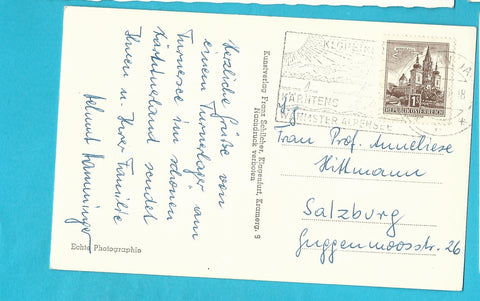 Herzliche Grüße von
einem Turnerlager am
Turnersee im schönen
Kärntnerland sendet
Ihnen u. Ihrer Familie
Helmut
Echte Photographie
Kunstverlag Franz Schilcher, Klagenfurt, Kramerg. 9
Nachdruck verboten
KLOPEIN
KÄRNTENS
WÄRMSTER ALPENSEE
REPUBLIK ÖSTERREICH
Frau Prof. Anneliese
Hittmann
Salzburg
Guggenmoosstr. 26